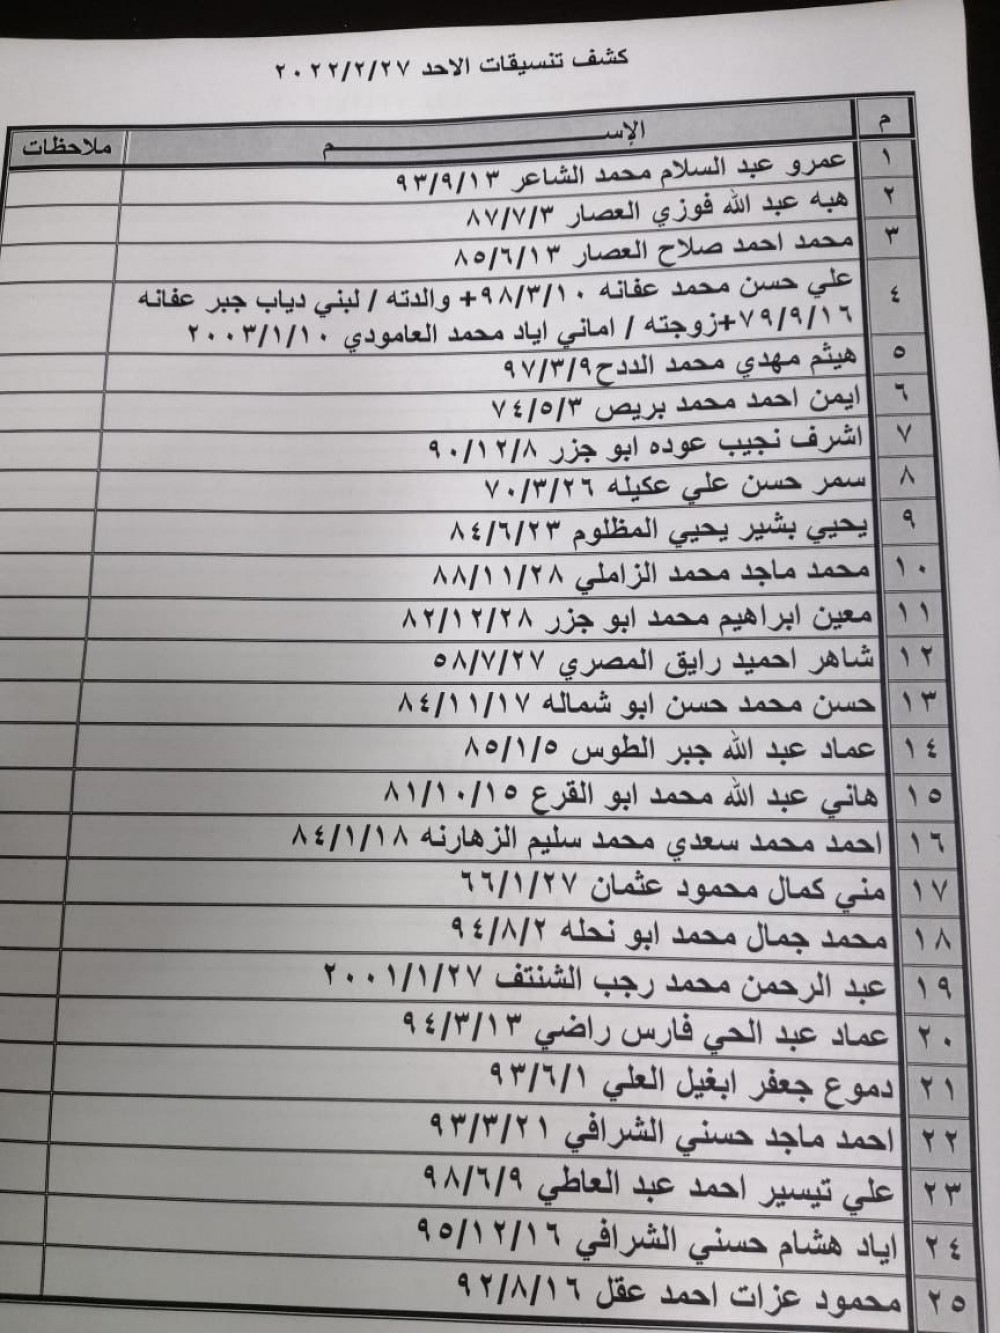 كشف تنسيقات الاحد ٢٠٢٢/٢/٢٧
م الإســـــــــــــــــم ملاحظات
١ عمرو عبد السلام محمد الشاعر ٩٣/٩/١٣
٢ هبه عبد الله فوزي العصار ٨٧/٧/٣
٣ محمد احمد صلاح العصار ٨٥/٦/١٣
٤ علي حسن محمد عفانه ٩٨/٣/١٠+ والدته / لبني دياب جبر عفانه
٧٩/٩/١٦+زوجته / اماني اياد محمد العامودي ٢٠٠٣/١/١٠
٥ هيثم مهدي محمد الددح٩٧/٣/٩
٦ ايمن احمد محمد بريص ٧٤/٥/٣
٧ اشرف نجيب عوده ابو جزر ٩٠/١٢/٨
٨ سمر حسن علي عكيله ٧٠/٣/٢٦
٩ يحيي بشير يحيي المظلوم ٨٤/٦/٢٣
١٠ محمد ماجد محمد الزاملي ٨٨/١١/٢٨
١١ معين ابراهيم محمد ابو جزر ٨٢/١٢/٢٨
١٢ شاهر احميد رايق المصري ٥٨/٧/٢٧
١٣ حسن محمد حسن ابو شماله ٨٤/١١/١٧
١٤ عماد عبد الله جبر الطوس ٨٥/١/٥
١٥ هاني عبد الله محمد ابو القرع ٨١/١٠/١٥
١٦ احمد محمد سعدي محمد سليم الزهارنه ٨٤/١/١٨
١٧ مني كمال محمود عثمان ٦٦/١/٢٧
١٨ محمد جمال محمد ابو نحله ٩٤/٨/٢
١٩ عبد الرحمن محمد رجب الشنتف ٢٠٠١/١/٢٧
٢٠ عماد عبد الحي فارس راضي ٩٤/٣/١٣
٢١ دموع جعفر ابغيل العلي ٩٣/٦/١
٢٢ احمد ماجد حسني الشرافي ٩٣/٣/٢١
٢٣ علي تيسير احمد عبد العاطي ٩٨/٦/٩
٢٤ اياد هشام حسني الشرافي ٩٥/١٢/١٦
٢٥ محمود عزات احمد عقل ٩٢/٨/١٦